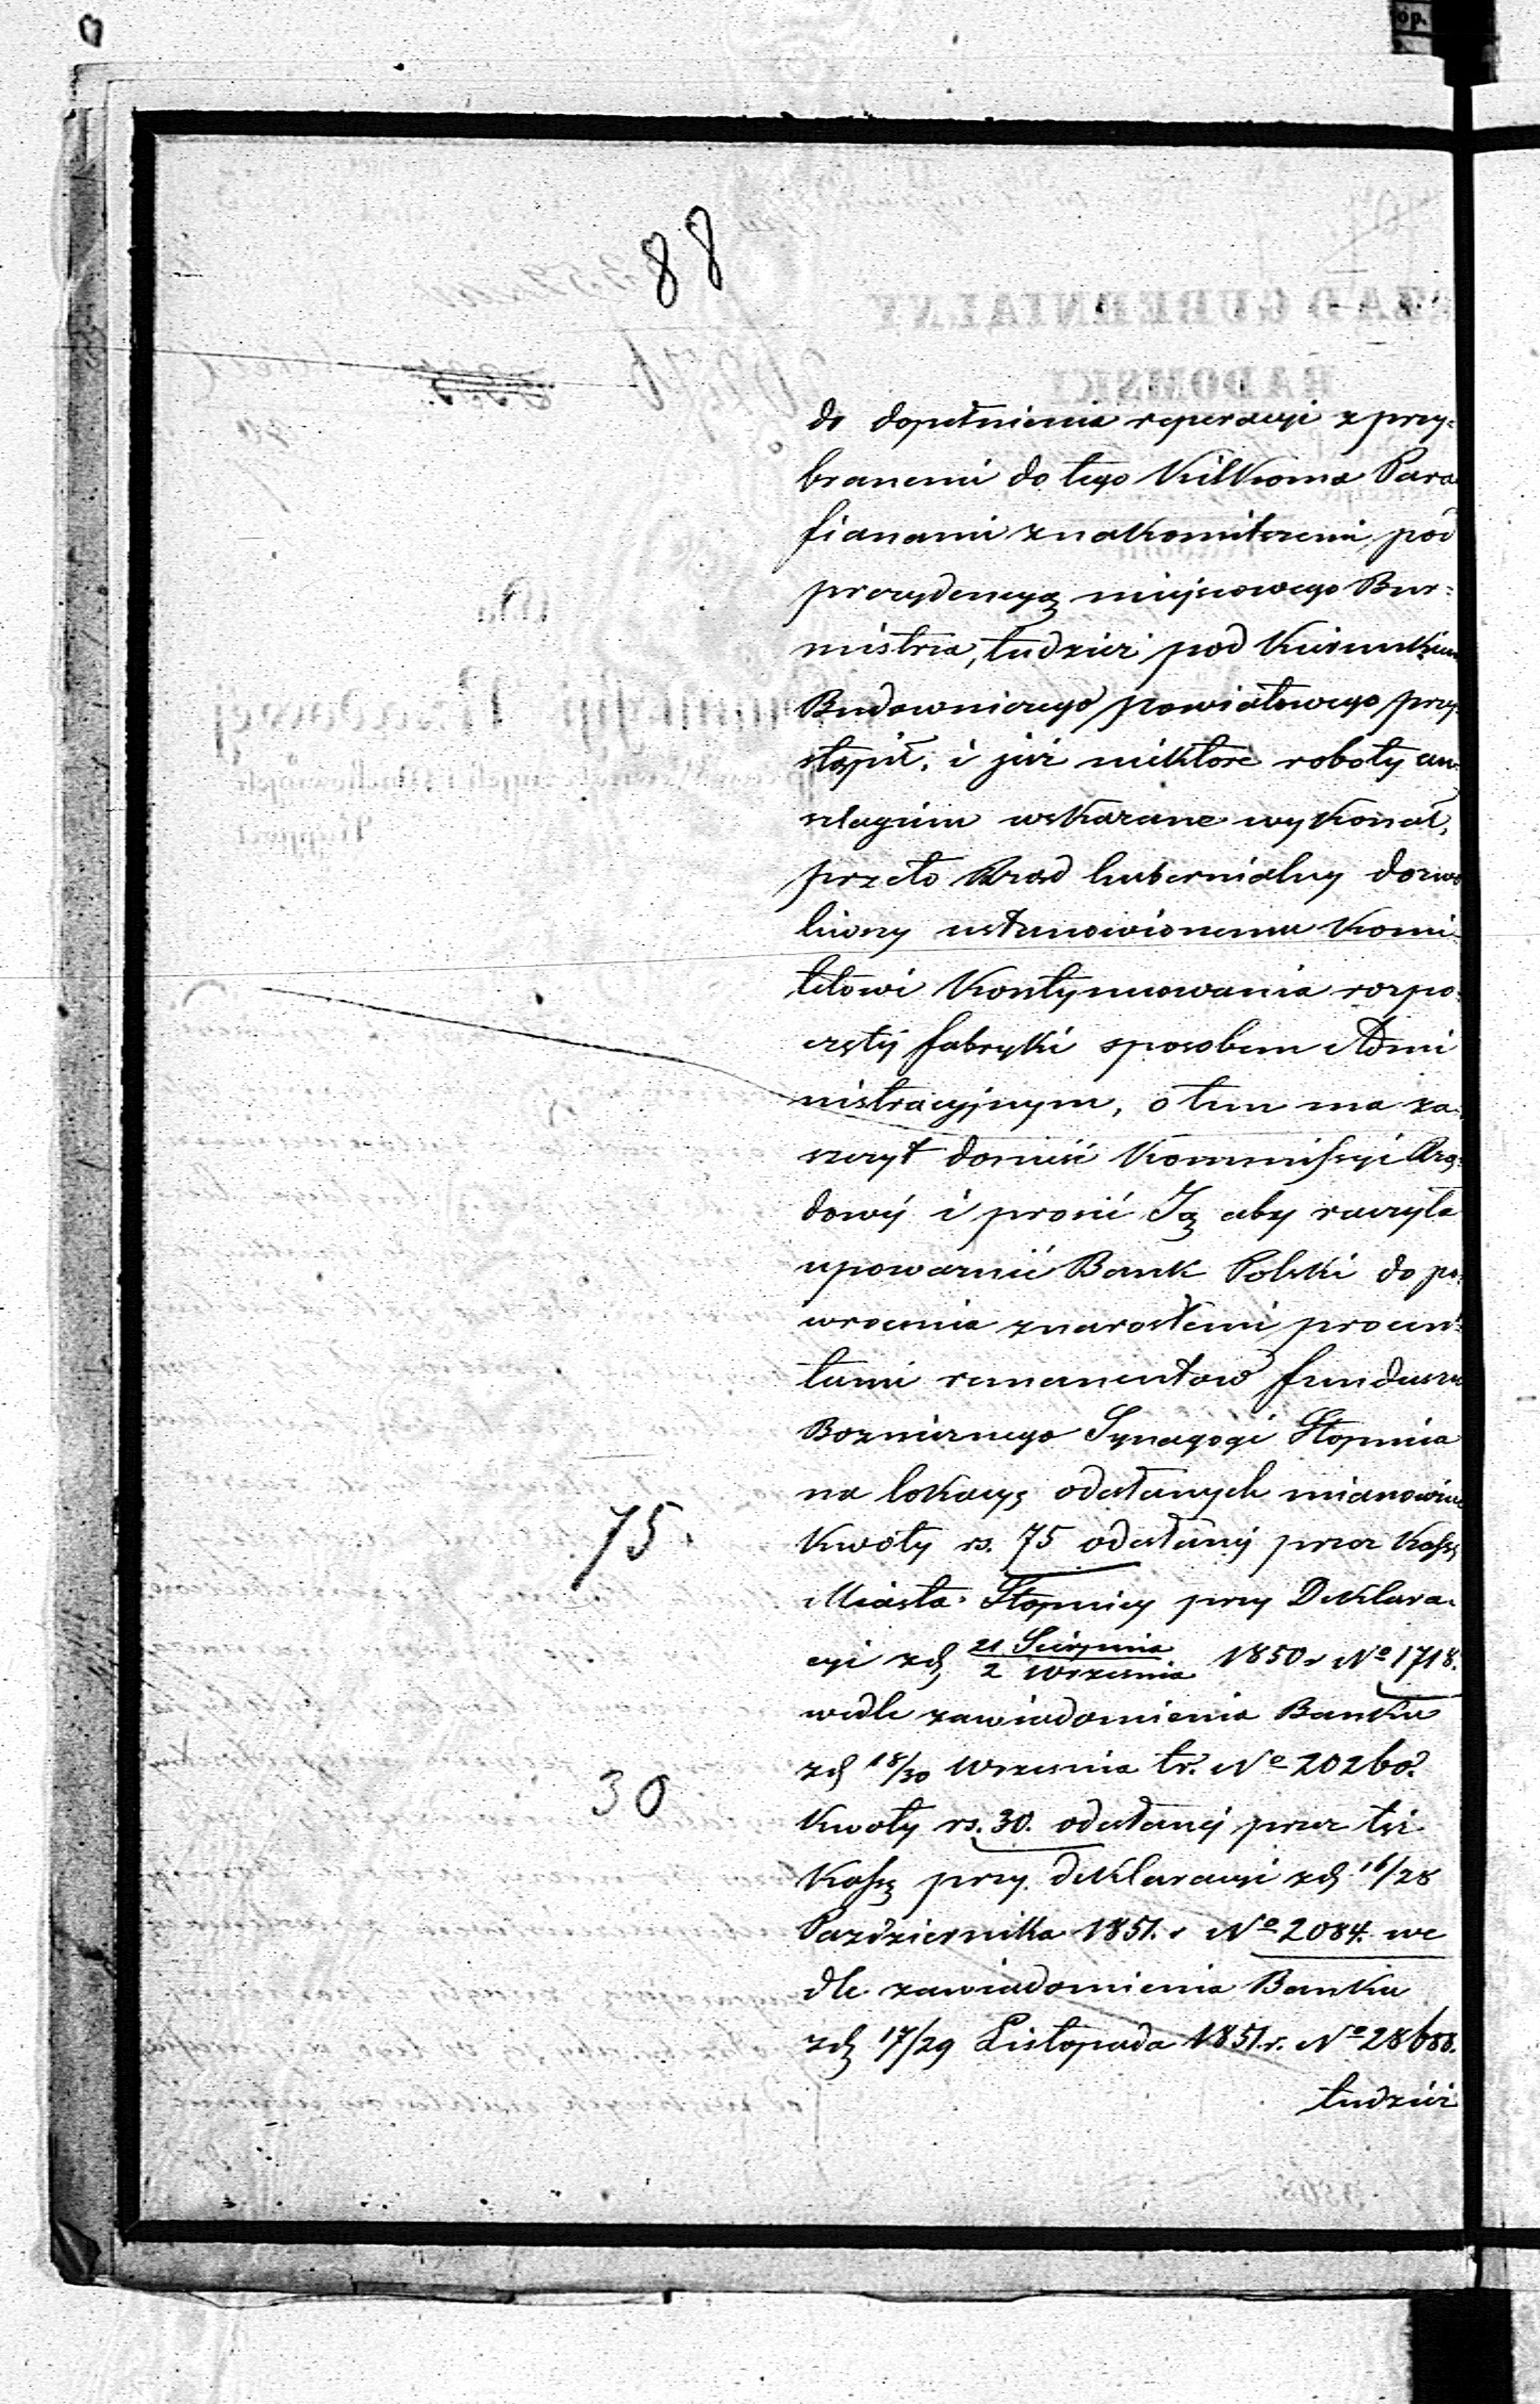 88
do dopełnienia reperacyi z przy=
branemi do tego Kilkoma Para
fianami znakomitszemi, pod
prezydencyą miejscowego Bur=
mistrza, tudzież pod Kierunkiem
Budowniczego powiatowego przy
stąpił, i już niektóre roboty an
szlagiem wskazane wykonał,
przeto Rząd Gubernialny dozwo
liwszy ustanowionemu Komi
tetowi Kontynuowania rozpo=
czętéj fabryki sposobem Admi
nistracyjnym, o tem ma za=
szczyt donieść Kommissyi Rzą=
dowéj i prosić Ją aby raczyła
upoważnić Bank Polski do po=
wrócenia z narosłemi procen=
tami remanentów funduszu
Bożniczego Synagogi Stopnica
na lokacyę odesłanych mianowicie
75. Kwoty rs. 75 odesłanéj przez Kassę
Miasta Stopnicy przy Deklara=
cyi z d. 21 Sierpnia / 2 Września 1850 r. No 1718.
wedle zawiadomienia Banku
z d. 18/30 Września t.r. No 20260.
30 Kwoty rs. 30. odesłanéj przez też
Kassę przy deklaracyi z d. 16/28
Października 1851. r. No 2084. we
dle zawiadomienia Banku
z d. 17/29 Listopada 1851. r. No 28688.
tudzież